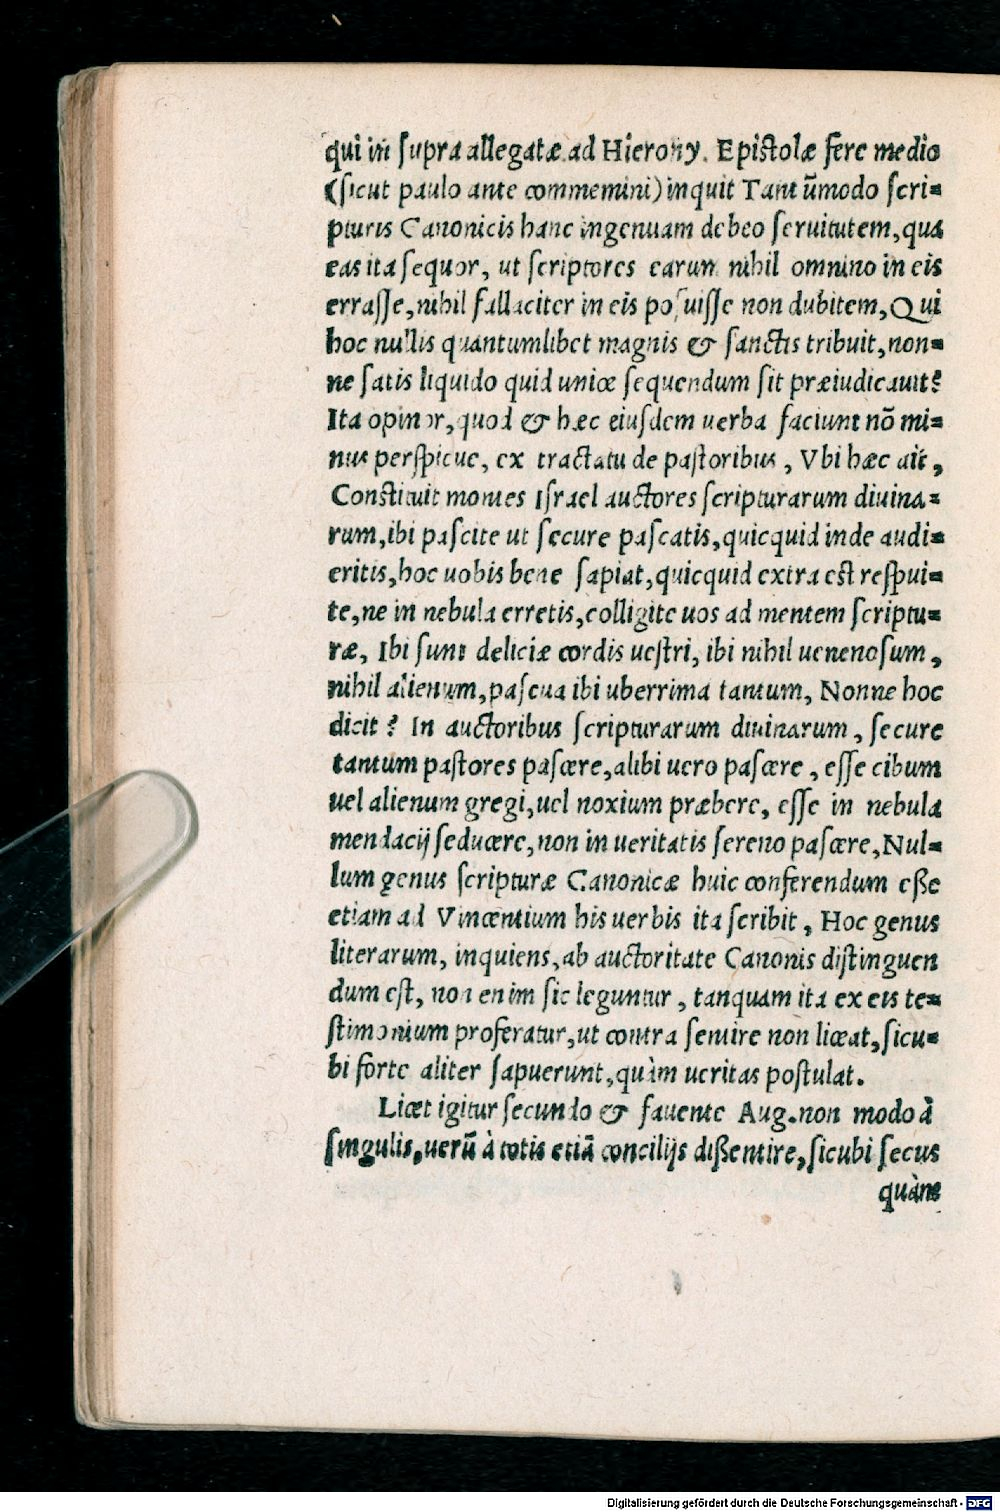 qui in ſupra allegatæ ad Hierony. Epiſtolæ fere medio
(ſicut paulo ante commemini) inquit Tant ūmodo ſcri=
pturis Canonicis hanc ingenuam debeo ſeruitutem, qua
eas ita ſequor, ut ſcriptores earum nihil omnino in eis
erraſſe, nihil fallaciter in eis poſuiſſe non dubitem, Qui
hoc nullis quantumlibet magnis & ſanctis tribuit, non=
ne ſatis liquido quid unice ſequendum ſit præiudicauit?
Ita opinor, quod & hæc eiuſdem uerba faciunt nō mi=
nus perſpicue, ex tractatu de paſtoribus, Vbi hæc ait,
Conſtituit montes Iſrael auctores ſcripturarum diuina=
rum, ibi paſcite ut ſecure paſcatis, quicquid inde audi=
eritis, hoc uobis bene ſapiat, quicquid extra eſt reſpui=
te, ne in nebula erretis, colligite uos ad mentem ſcriptu=
ræ, Ibi ſunt deliciæ cordis ueſtri, ibi nihil uenenoſum,
nihil alienum, paſcua ibi uberrima tantum, Nonne hoc
dicit? In auctoribus ſcripturarum diuinarum, ſecure
tantum paſtores paſcere, alibi uero paſcere, eſſe cibum
uel alienum gregi, uel noxium præbere, eſſe in nebula
mendacij ſeducere, non in ueritatis ſereno paſcere, Nul=
lum genus ſcripturæ Canonicæ huic conferendum eße
etiam ad Vincentium his uerbis ita ſcribit, Hoc genus
literarum, inquiens, ab auctoritate Canonis diſtinguen
dum eſt, non enim ſic leguntur, tanquam ita ex eis te=
ſtimonium proferatur, ut contra ſentire non liceat, ſicu=
bi forte aliter ſapuerunt, quàm ueritas poſtulat.
Licet igitur ſecundo & fauente Aug. non modo à
ſingulis, uerū à totis etiā concilijs dißentire, ſicubi ſecus
quàm
Digitalisierung gefördert durch die Deutsche Forschungsgemeinschaft - DFG